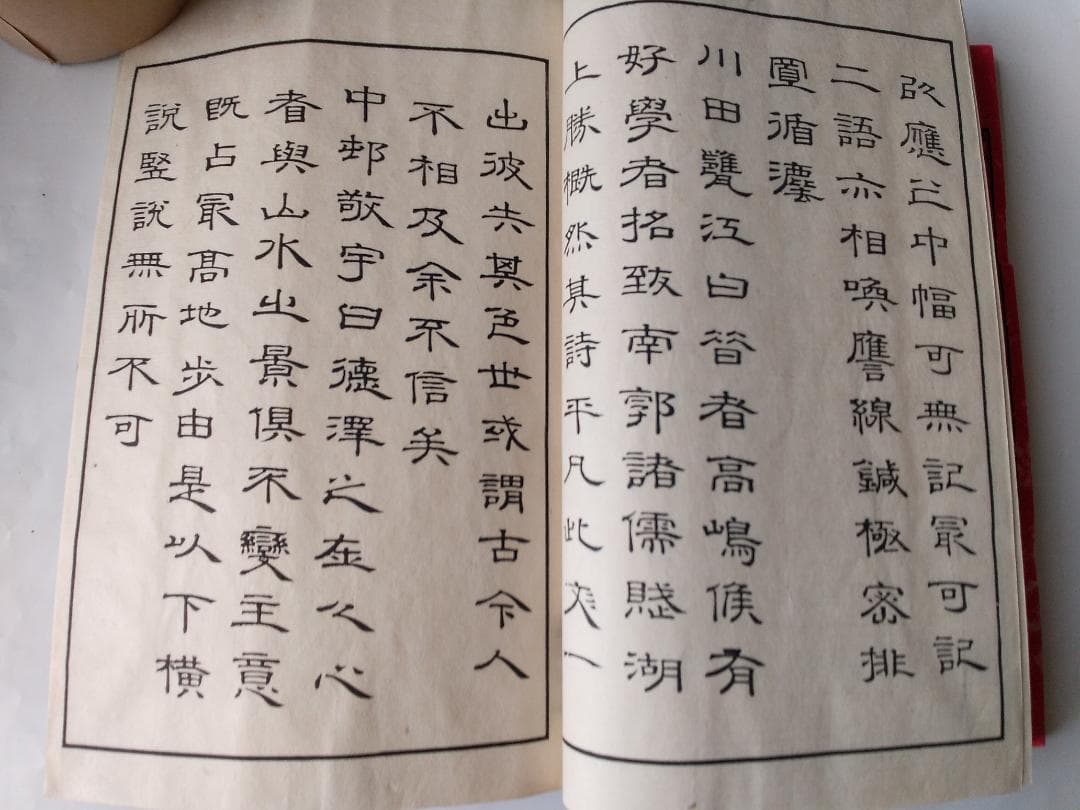 應之中幅可無記冣可記
二語亦相喚譍線鍼極密排
置循灋
川田甕江曰昔者高嶋侯有
好學者招致南郭諸儒賦湖
上勝概然其詩平凡此文一
出彼失其色世或謂古今人
不相及余不信矣
中邨敬宇曰德澤之在人心
者與山水之景俱不變主意
既占冣高地步由是以下橫
說竪說無所不可